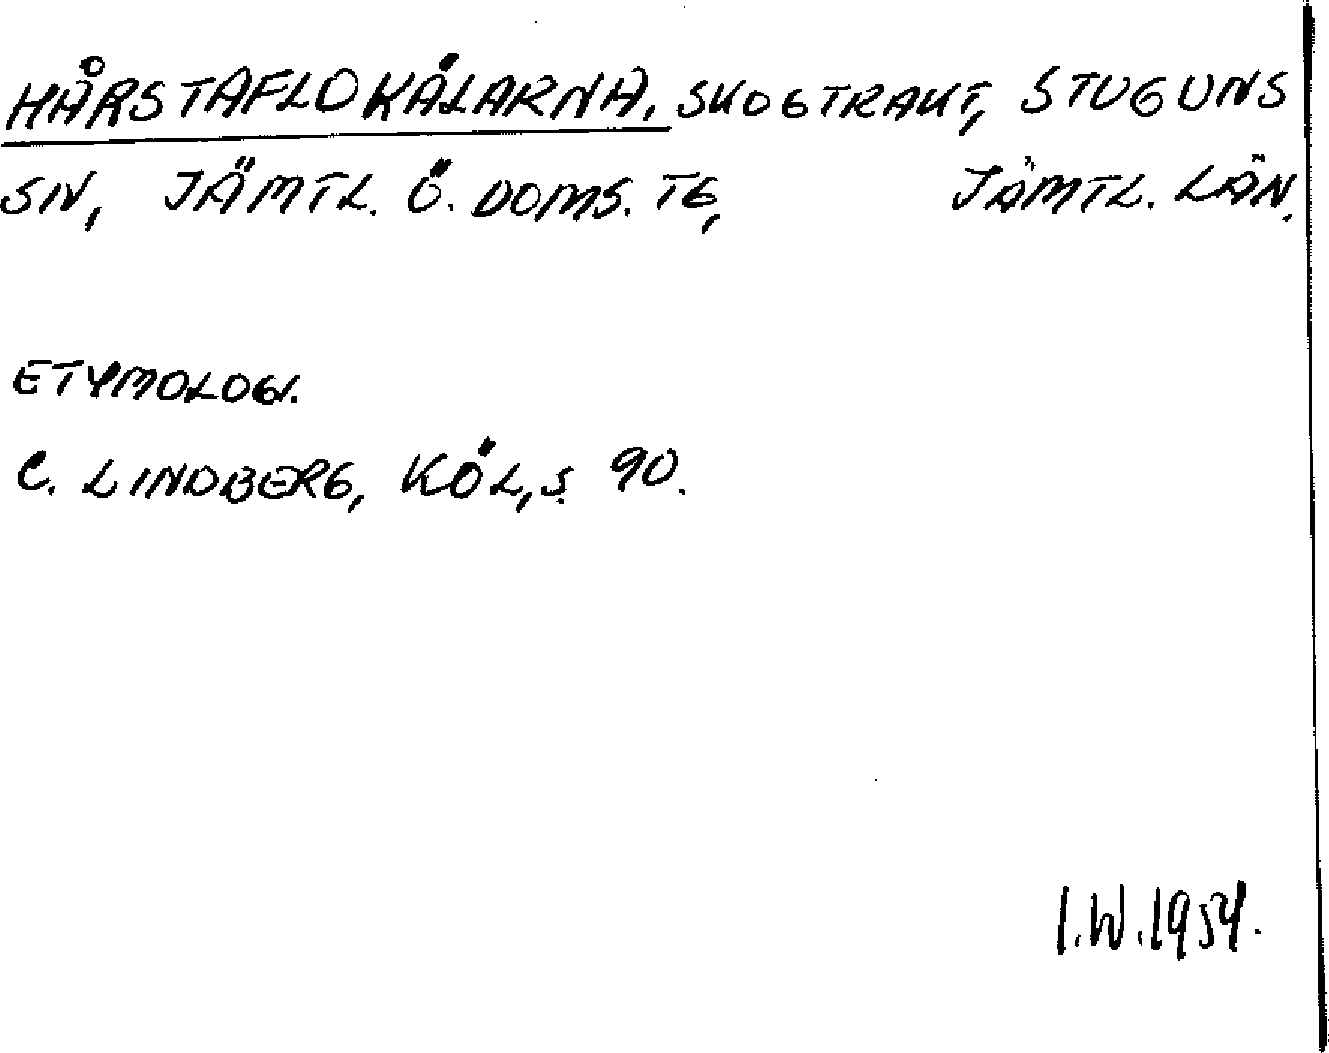 HÅRSTAFLOKÄLARNA, SKOGTRAKT, STUGUNS
SN, JÄMTL. Ö. DOMS. TG, JÄMTL. LÄN.
ETYMOLOGI.
C. LINDBERG, KÖL, S. 90.
I.W. 1954.